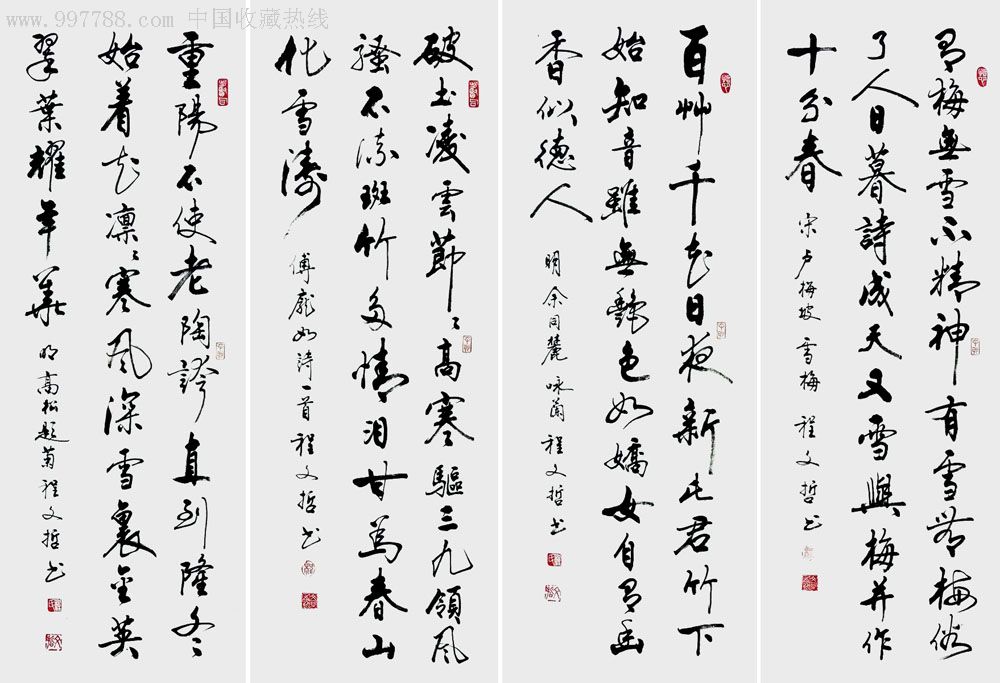 www.997788.com 中国收藏热线
有梅無雪不精神有雪無梅俗
了人日暮詩成天又雪與梅并作
十分春 宋卢梅坡 雪梅 程文哲书
百艸千花日夜新此君竹下
始知音雖無艷色如嬌女自有幽
香似德人 明余同麓咏蘭 程文哲书
破土凌雲節々高寒驅三九領風
骚不流斑竹多情泪甘爲春山
化雪濤 傅庞如詩一首 程文哲书
重陽不使老陶誇直到隆冬
始着花凛々寒風深雪裏金英
翠葉耀年華 明高松题菊程文哲书